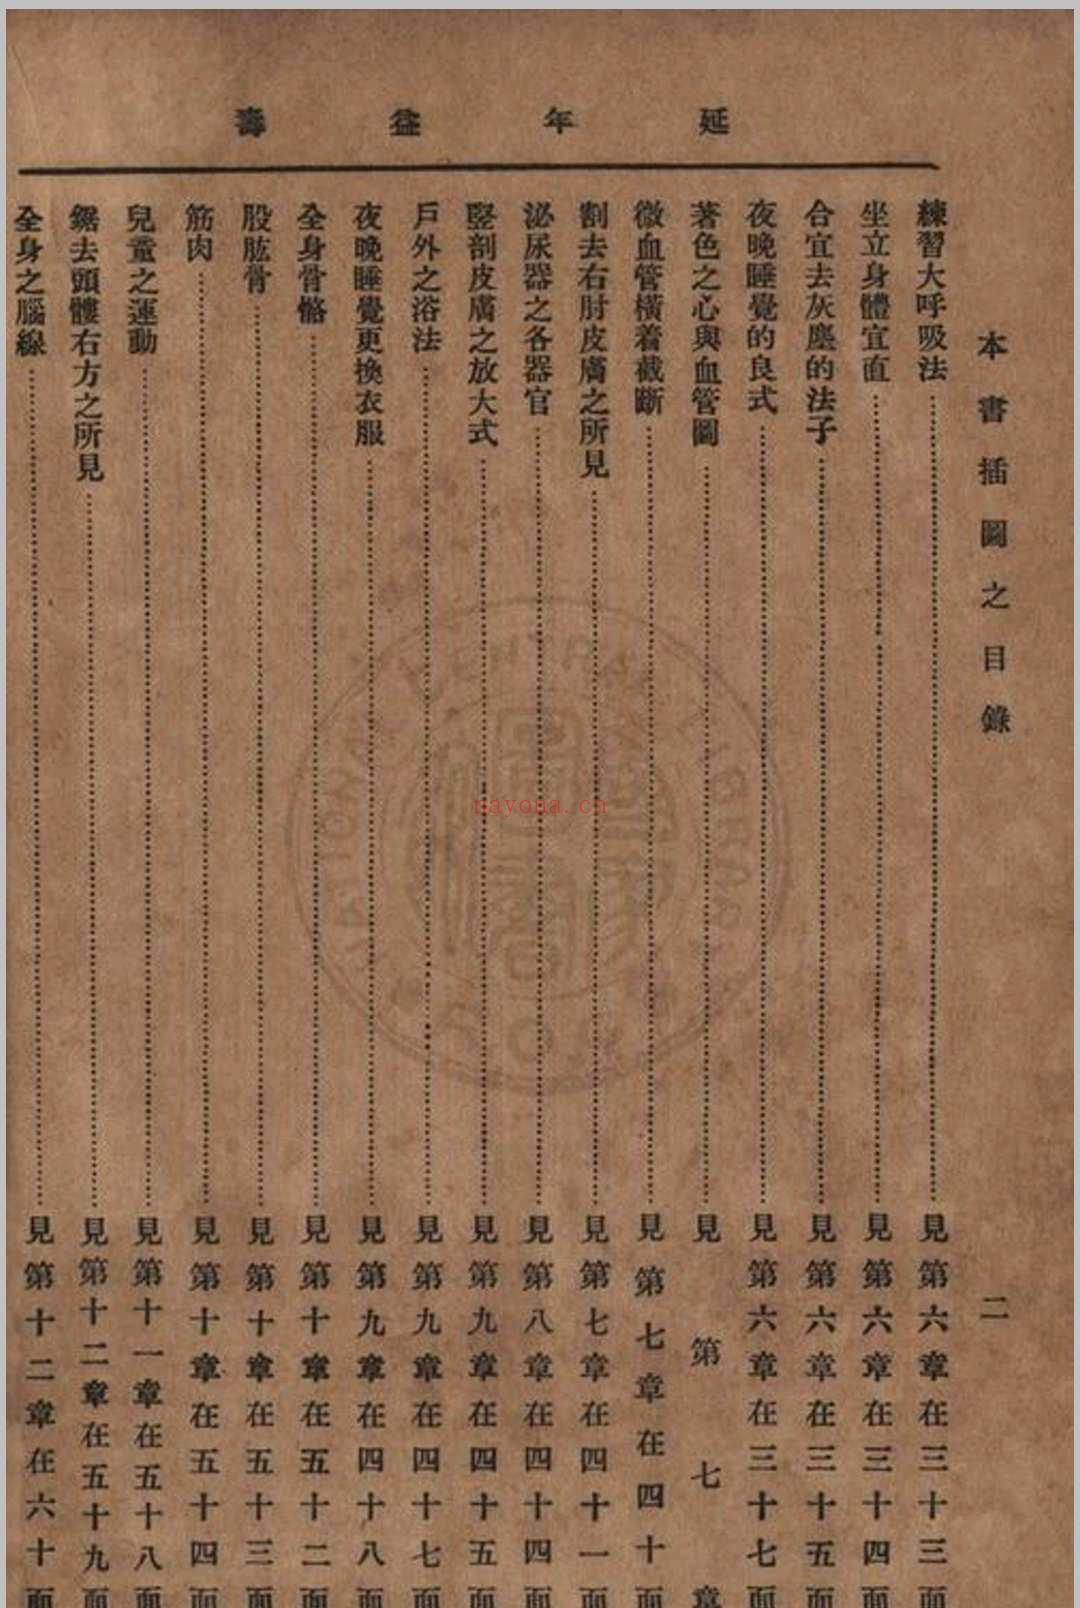 延年益壽
本書插圖之目錄
二
練習大呼吸法……見第六章在三十三面
坐立身體宜直……見第六章在三十四面
合宜去灰塵的法子……見第六章在三十五面
夜晚睡覺的良式……見第六章在三十七面
著色之心與血管圖……見第七章
微血管橫着截斷……見第七章在四十面
割去右肘皮膚之所見……見第七章在四十一面
泌尿器之各器官……見第八章在四十四面
竪剖皮膚之放大式……見第九章在四十五面
戶外之浴法……見第九章在四十七面
夜晚睡覺更換衣服……見第九章在四十八面
全身骨骼……見第十章在五十二面
股肱骨……見第十章在五十三面
筋肉……見第十章在五十四面
兒童之運動……見第十一章在五十八面
鋸去頭髏右方之所見……見第十二章在五十九面
全身之腦線……見第十二章在六十面
nayona.cn